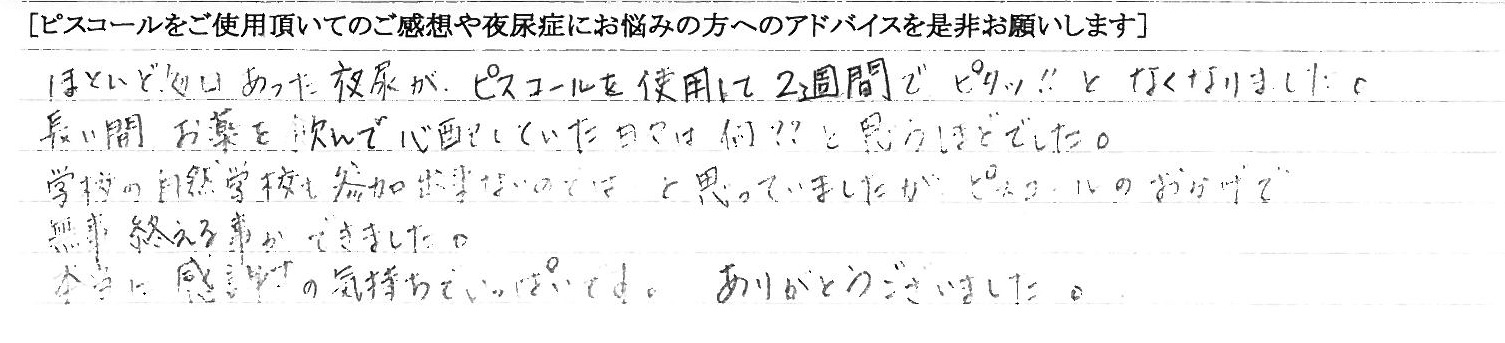 [ピスコールをご使用頂いてのご感想や夜尿症にお悩みの方へのアドバイスを是非お願いします]
ほとんど毎日あった夜尿が、ピスコールを使用して2週間でピタッ!!となくなりました。
長い間お薬を飲んで心配していた日々は何??と思うほどでした。
学校の自然学校も参加出来ないのではと思っていましたがピスコールのおかげで
無事終える事ができました。
本当に感謝の気持ちでいっぱいです。ありがとうございました。